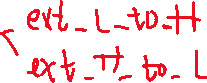 ext_L_to_H
ext_H_to_L